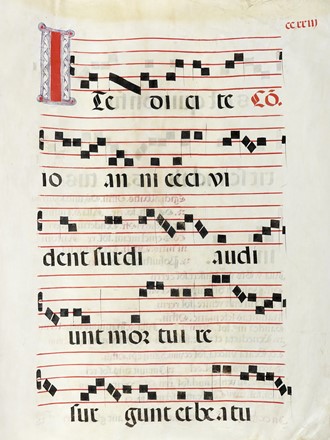 ccxxiij
Ite di ci te Cō.
io an ni ceci vi
dent surdi audi
unt mor tui re
sur gunt et be a tu